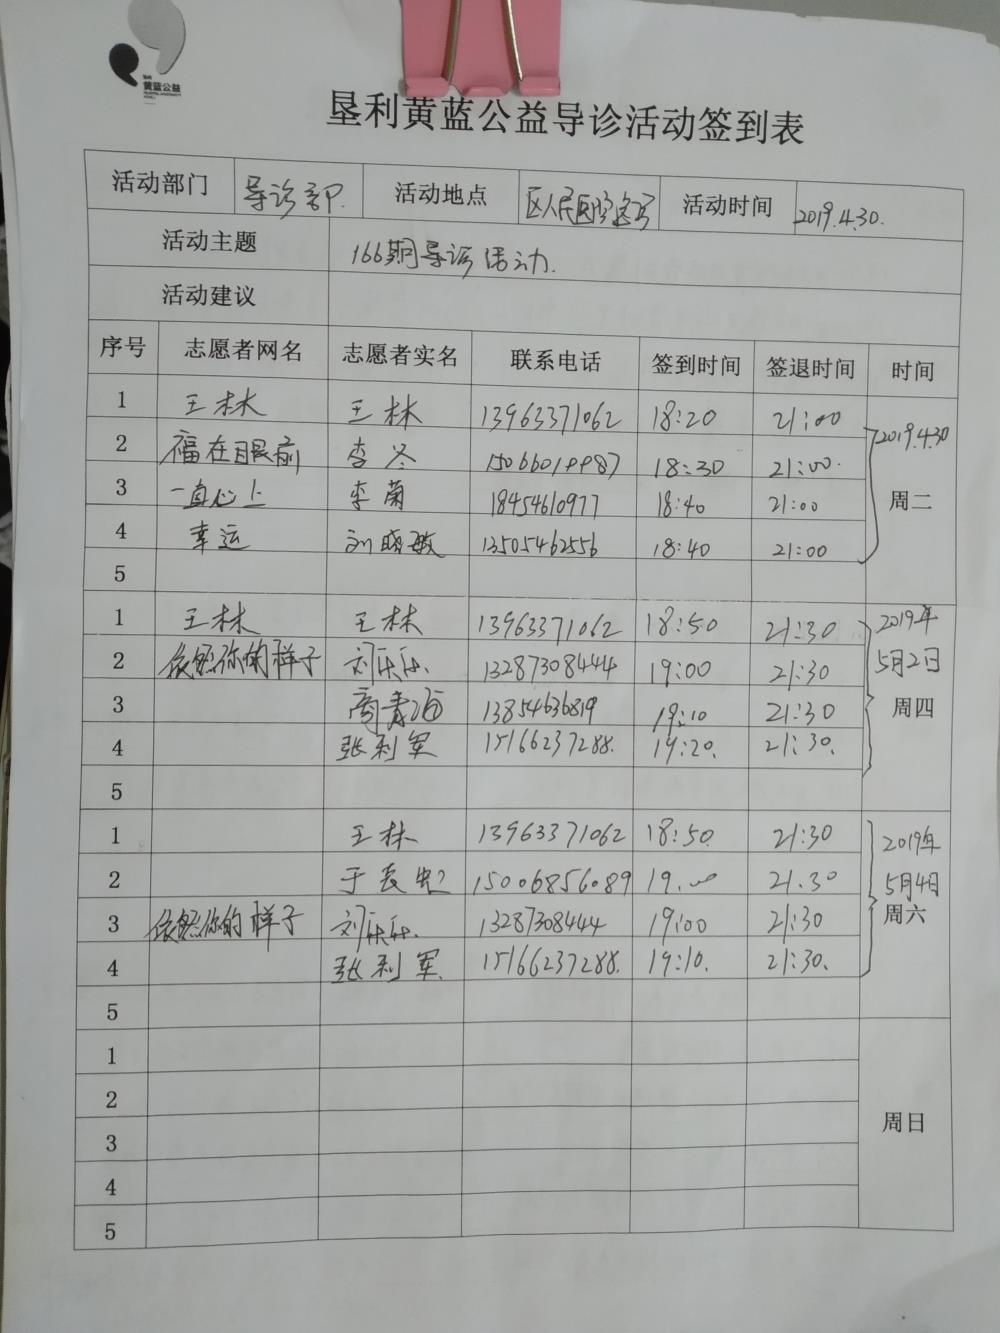 黄蓝公益
垦利黄蓝公益导诊活动签到表
活动部门 导诊部. 活动地点 区人民医院 活动时间 2019.4.30.
活动主题 166期导诊活动.
活动建议
序号 志愿者网名 志愿者实名 联系电话 签到时间 签退时间 时间
1 王林 王林 13963371062 18:20 21:00 2019.4.30
2 福在眼前 李冬 18:30 21:00.
3 一直心上 李菊 18454610977 18:40 21:00 周二
4 幸运 刘晓敏 13505462556 18:40 21:00
5
1 王林 王林 13963371062 18:50 21:30 2019年
2 依然你的样子 刘乐乐. 13287308444 19:00 21:30 5月2日
3 周青海 13854636819 19:10 21:30 周四
4 张利军 15166237288. 19:20. 21:30.
5
1 王林 13963371062 18:50. 21:30 2019年
2 15006856089 19.00 21.30 5月4日
3 依然你的样子 刘乐乐. 13287308444 19:00 21:30 周六
4 张利军. 15166237288. 19:10. 21:30.
5
1
2
3 周日
4
5